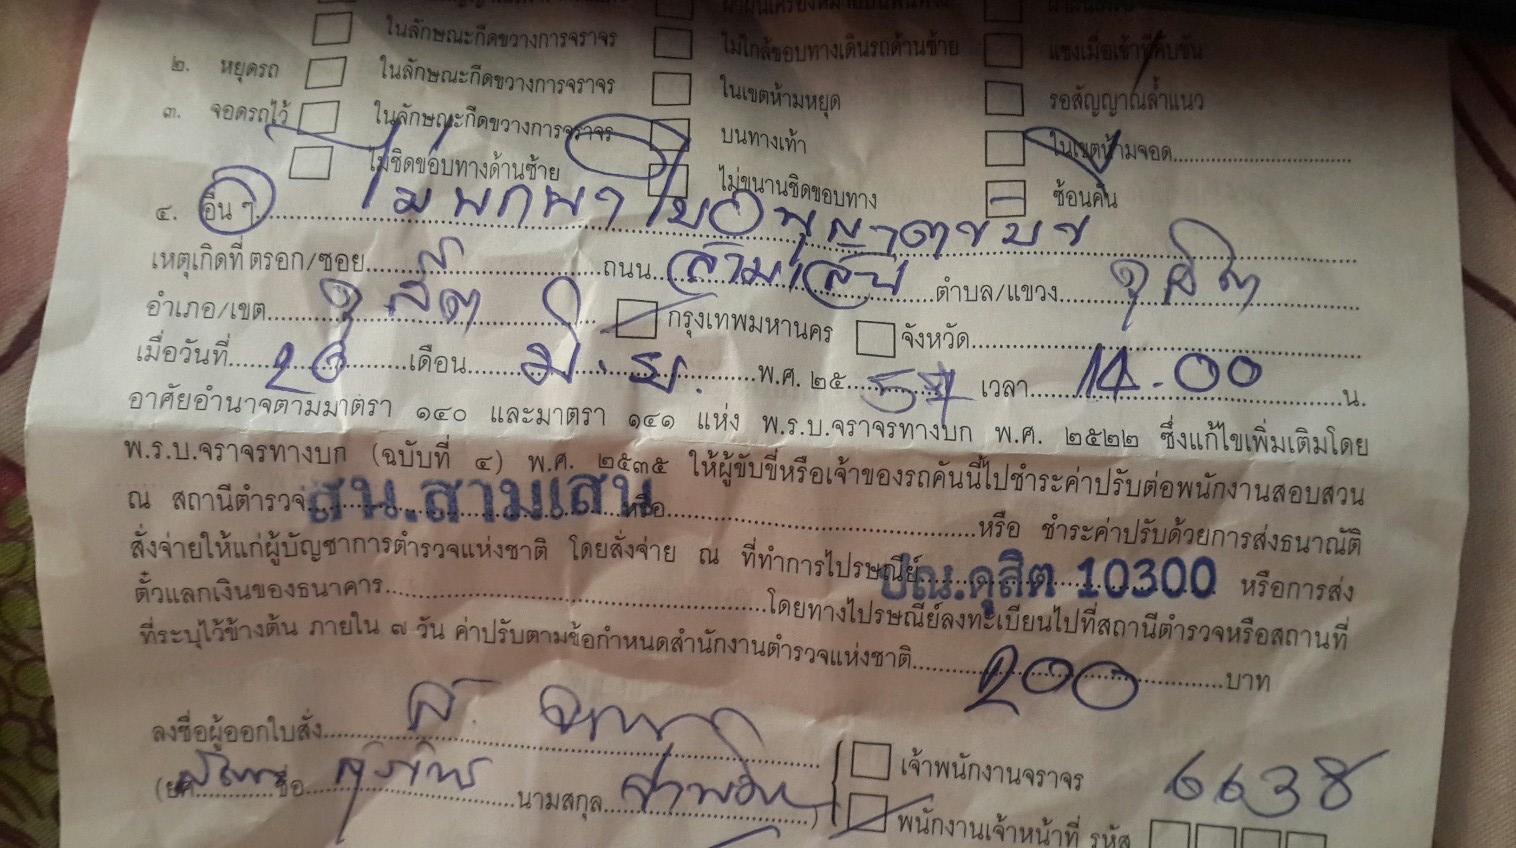 ในลักษณะกีดขวางการจราจร ไม่ใกล้ขอบทางเดินรถด้านซ้าย แซงเมื่อเข้าที่คับขัน
๒. หยุดรถ ในลักษณะกีดขวางการจราจร ในเขตห้ามหยุด รอสัญญาณล้ำแนว
๓. จอดรถไว้ ในลักษณะกีดขวางการจราจร บนทางเท้า ในเขตห้ามจอด
ไม่ชิดขอบทางด้านซ้าย ไม่ขนานชิดขอบทาง ซ้อนคัน
๔. อื่น ๆ ไม่พกพาใบอนุญาตขับขี่
เหตุเกิดที่ ตรอก/ซอย ถนน สามเสน ตำบล/แขวง ดุสิต
อำเภอ/เขต ดุสิต กรุงเทพมหานคร จังหวัด
เมื่อวันที่ 20 เดือน มิ.ย. พ.ศ. ๒๕ เวลา 14.00 น.
อาศัยอำนาจตามมาตรา ๑๔๐ และมาตรา ๑๔๑ แห่ง พ.ร.บ.จราจรทางบก พ.ศ. ๒๕๒๒ ซึ่งแก้ไขเพิ่มเติมโดย
พ.ร.บ.จราจรทางบก (ฉบับที่ ๔) พ.ศ. ๒๕๓๕ ให้ผู้ขับขี่หรือเจ้าของรถคันนี้ไปชำระค่าปรับต่อพนักงานสอบสวน
ณ สถานีตำรวจ สน.สามเสน หรือ หรือ ชำระค่าปรับด้วยการส่งธนาณัติ
สั่งจ่ายให้แก่ผู้บัญชาการตำรวจแห่งชาติ โดยสั่งจ่าย ณ ที่ทำการไปรษณีย์ ปณ.ดุสิต 10300 หรือการส่ง
ตั๋วแลกเงินของธนาคาร โดยทางไปรษณีย์ลงทะเบียนไปที่สถานีตำรวจหรือสถานที่
ที่ระบุไว้ข้างต้น ภายใน ๗ วัน ค่าปรับตามข้อกำหนดสำนักงานตำรวจแห่งชาติ 200 บาท
ลงชื่อผู้ออกใบสั่ง
เจ้าพนักงานจราจร 6638
(ยศ ชื่อ นามสกุล )
พนักงานเจ้าหน้าที่ รหัส